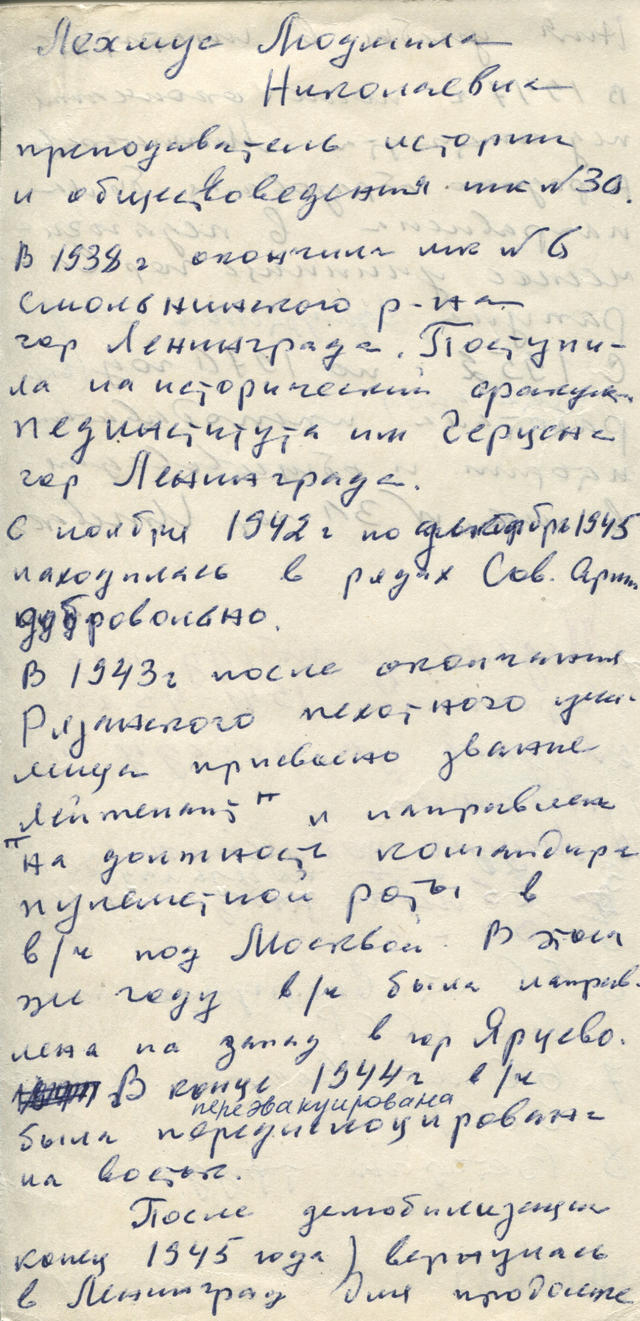 Лехмус Людмила
Николаевна
преподаватель истории
и обществоведения шк N 30.
В 1938 г окончила шк N 6
Смольнинского р-на
гор Ленинграда. Поступи-
ла на исторический факуль.
пединститута им Герцена
гор Ленинграда.
С ноября 1942 г по декабрь 1945
находилась в рядах Сов. Арми
добровольно.
В 1943 г после окончания
Рязанского пехотного учи-
лища присвоено звание
"лейтенант" и направлена
на должность командира
пулеметной роты в
в/ч под Москвой. В этом
же году в/ч была направ-
лена на запад в гор Ярцево.
В конце 1944 г в/ч
переэвакуирована
была передислоцирована
на восток.
После демобилизации
конец 1945 года) вернулась
в Ленинград для продолже